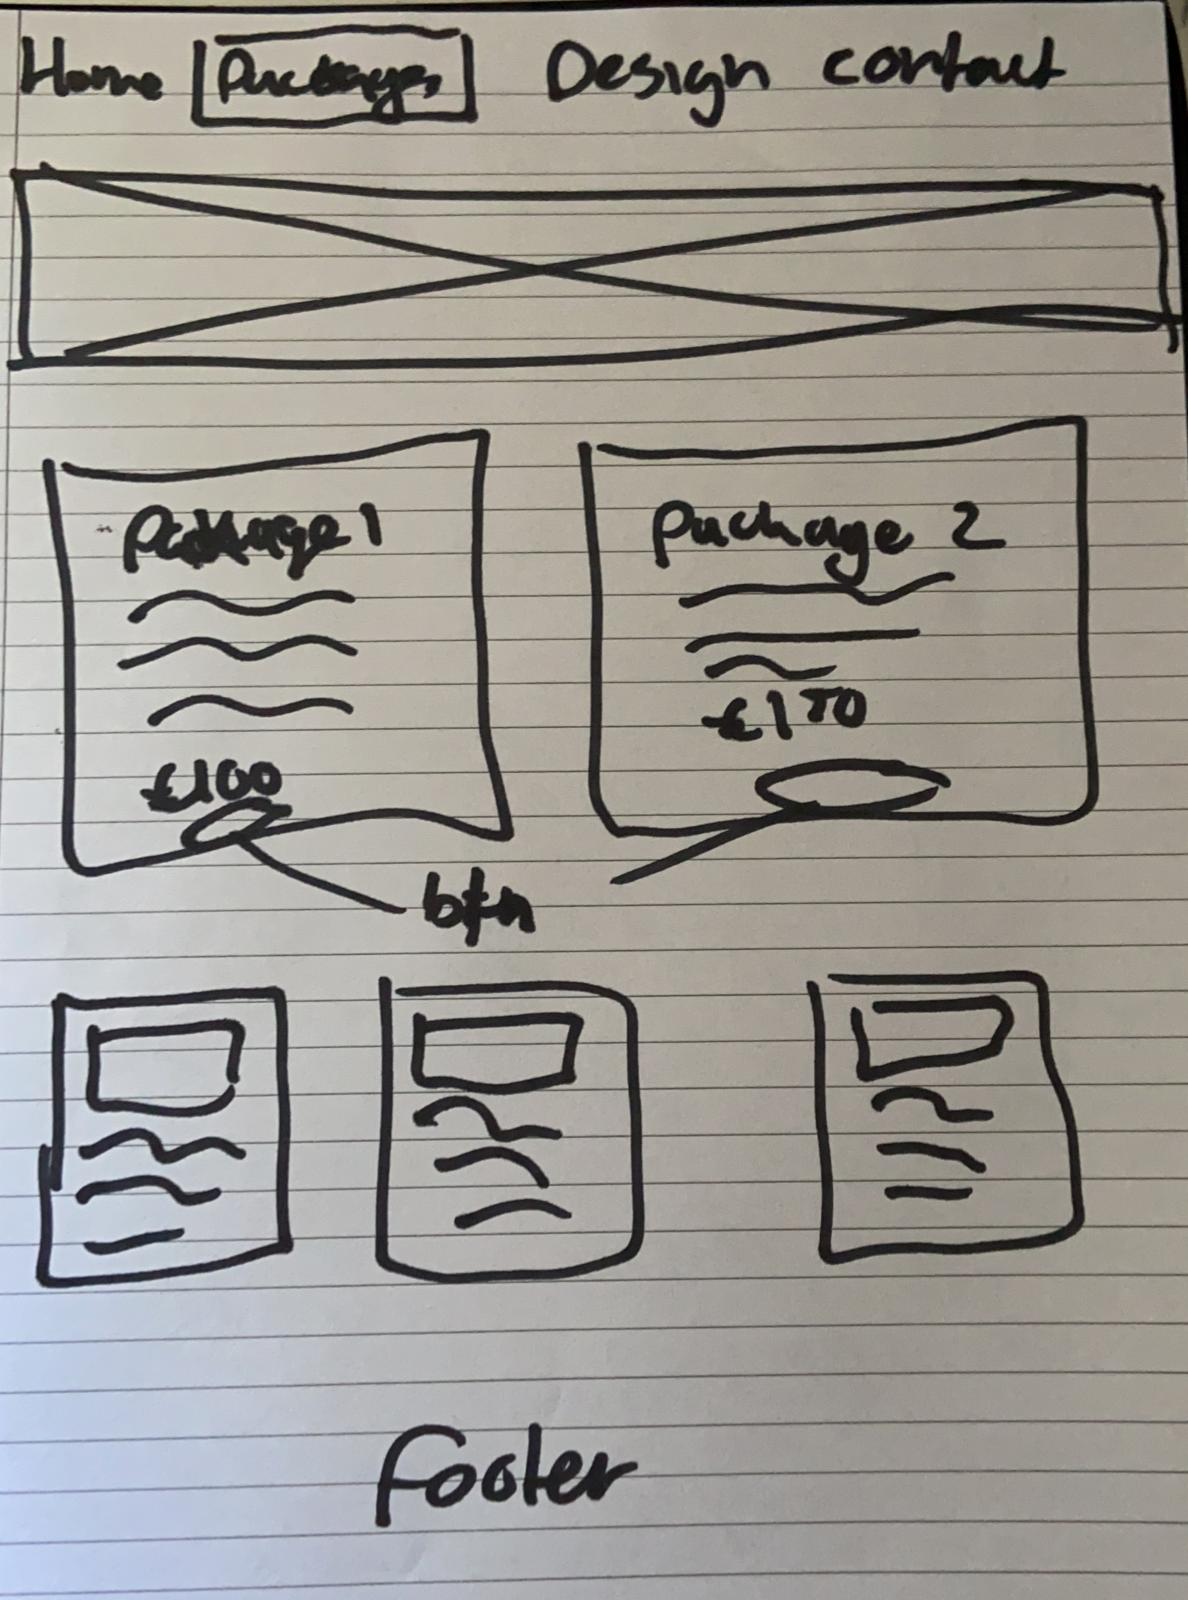 Home Packages Design contact
Package 1 Package 2
£100
btn
footer